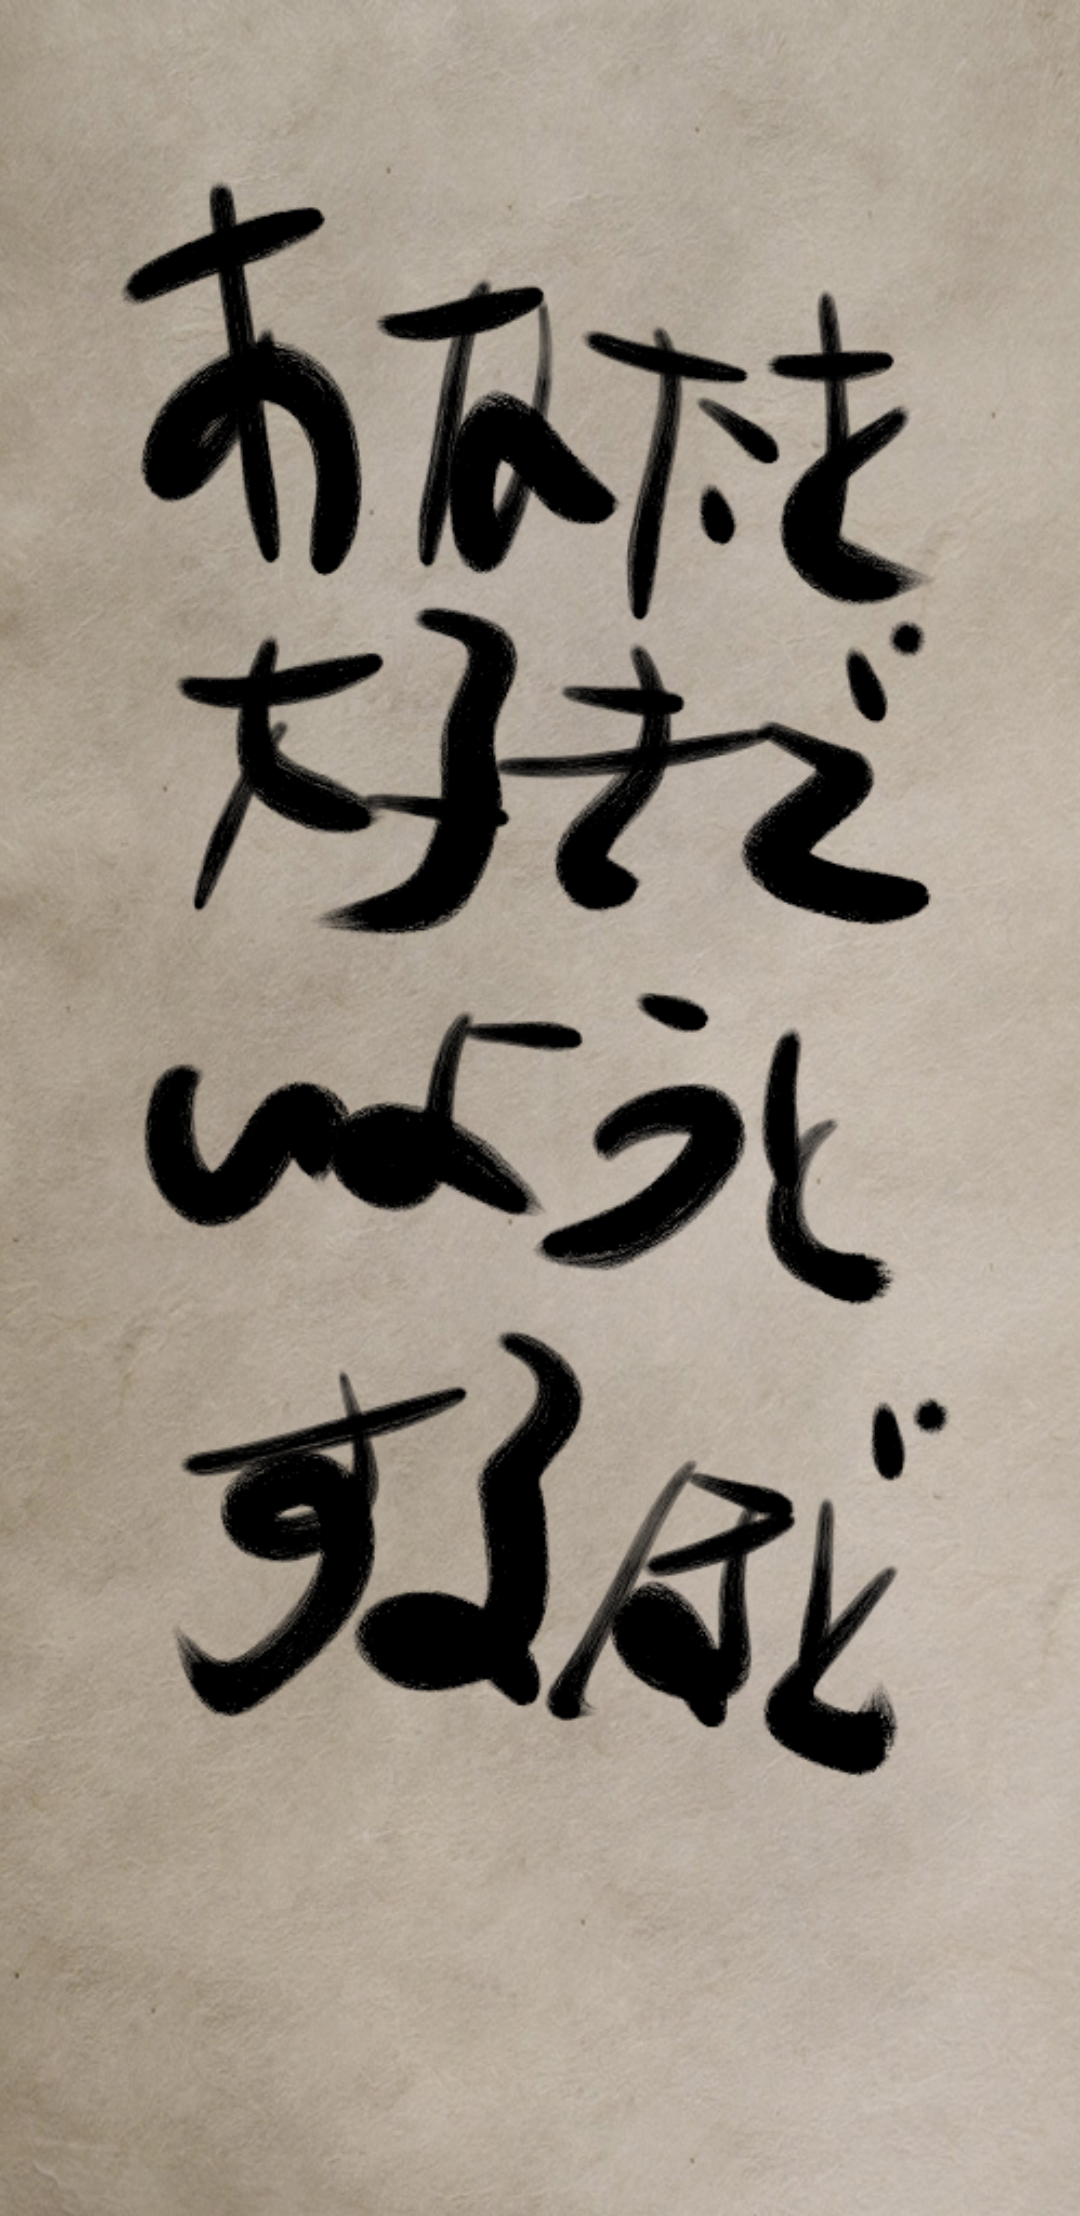 あなたを
好きで
いようと
するほど